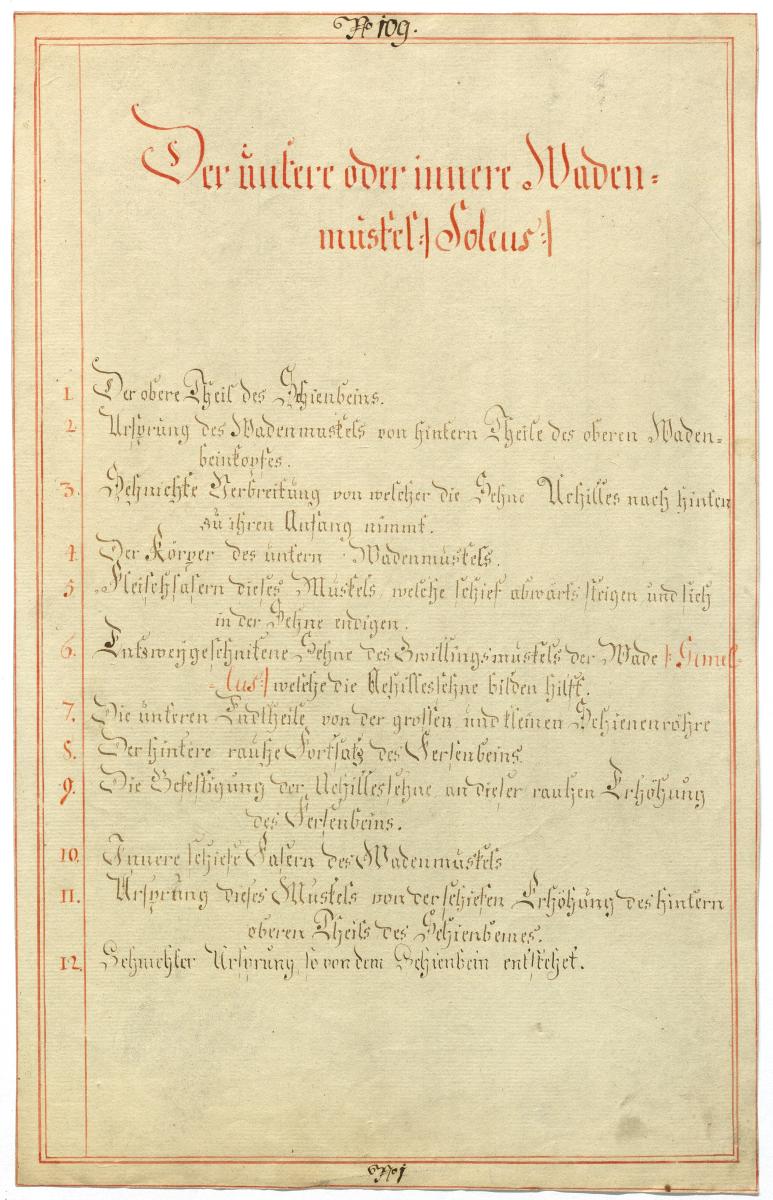 No 109.
Der üntere oder innere Waden=
müskel |: Soleus :|
1. Der obere Theil des Schienbeins.
2. Ursprüng des Wadenmuskels von hintern Theile des oberen Waden=
beinkopfes.
3. Sehnichte Verbreitüng von welcher die Sehne Achilles nach hinten
zü ihren Anfang nimmt.
4. Der Körper des üntern Wadenmüskels.
5. Fleischfasern dieses Müskels, welche schief abwärts steigen und sich
in der Sehne endigen.
6. Entzweÿgeschnitene Sehne des Zwillingsmüskels der Wade |: Gimel=
=lus :| welche die Achillessehne bilden hilft.
7. Die ünteren Endtheile von der grossen und kleinen Schienenröhre
8. Der hintere rauhe Fortsatz des Fersenbeins.
9. Die Befestigung der Achillessehne an dieser rauhen Erhöhung
des Fersenbeins.
10. Innere schiefe Fasern des Wadenmüskels
11. Ursprüng dieses Muskels von der schiefen Erhöhüng des hintern
oberen Theils des Schienbeines.
12. Ursprung, so von dem Schienbein entstehet.
No 1